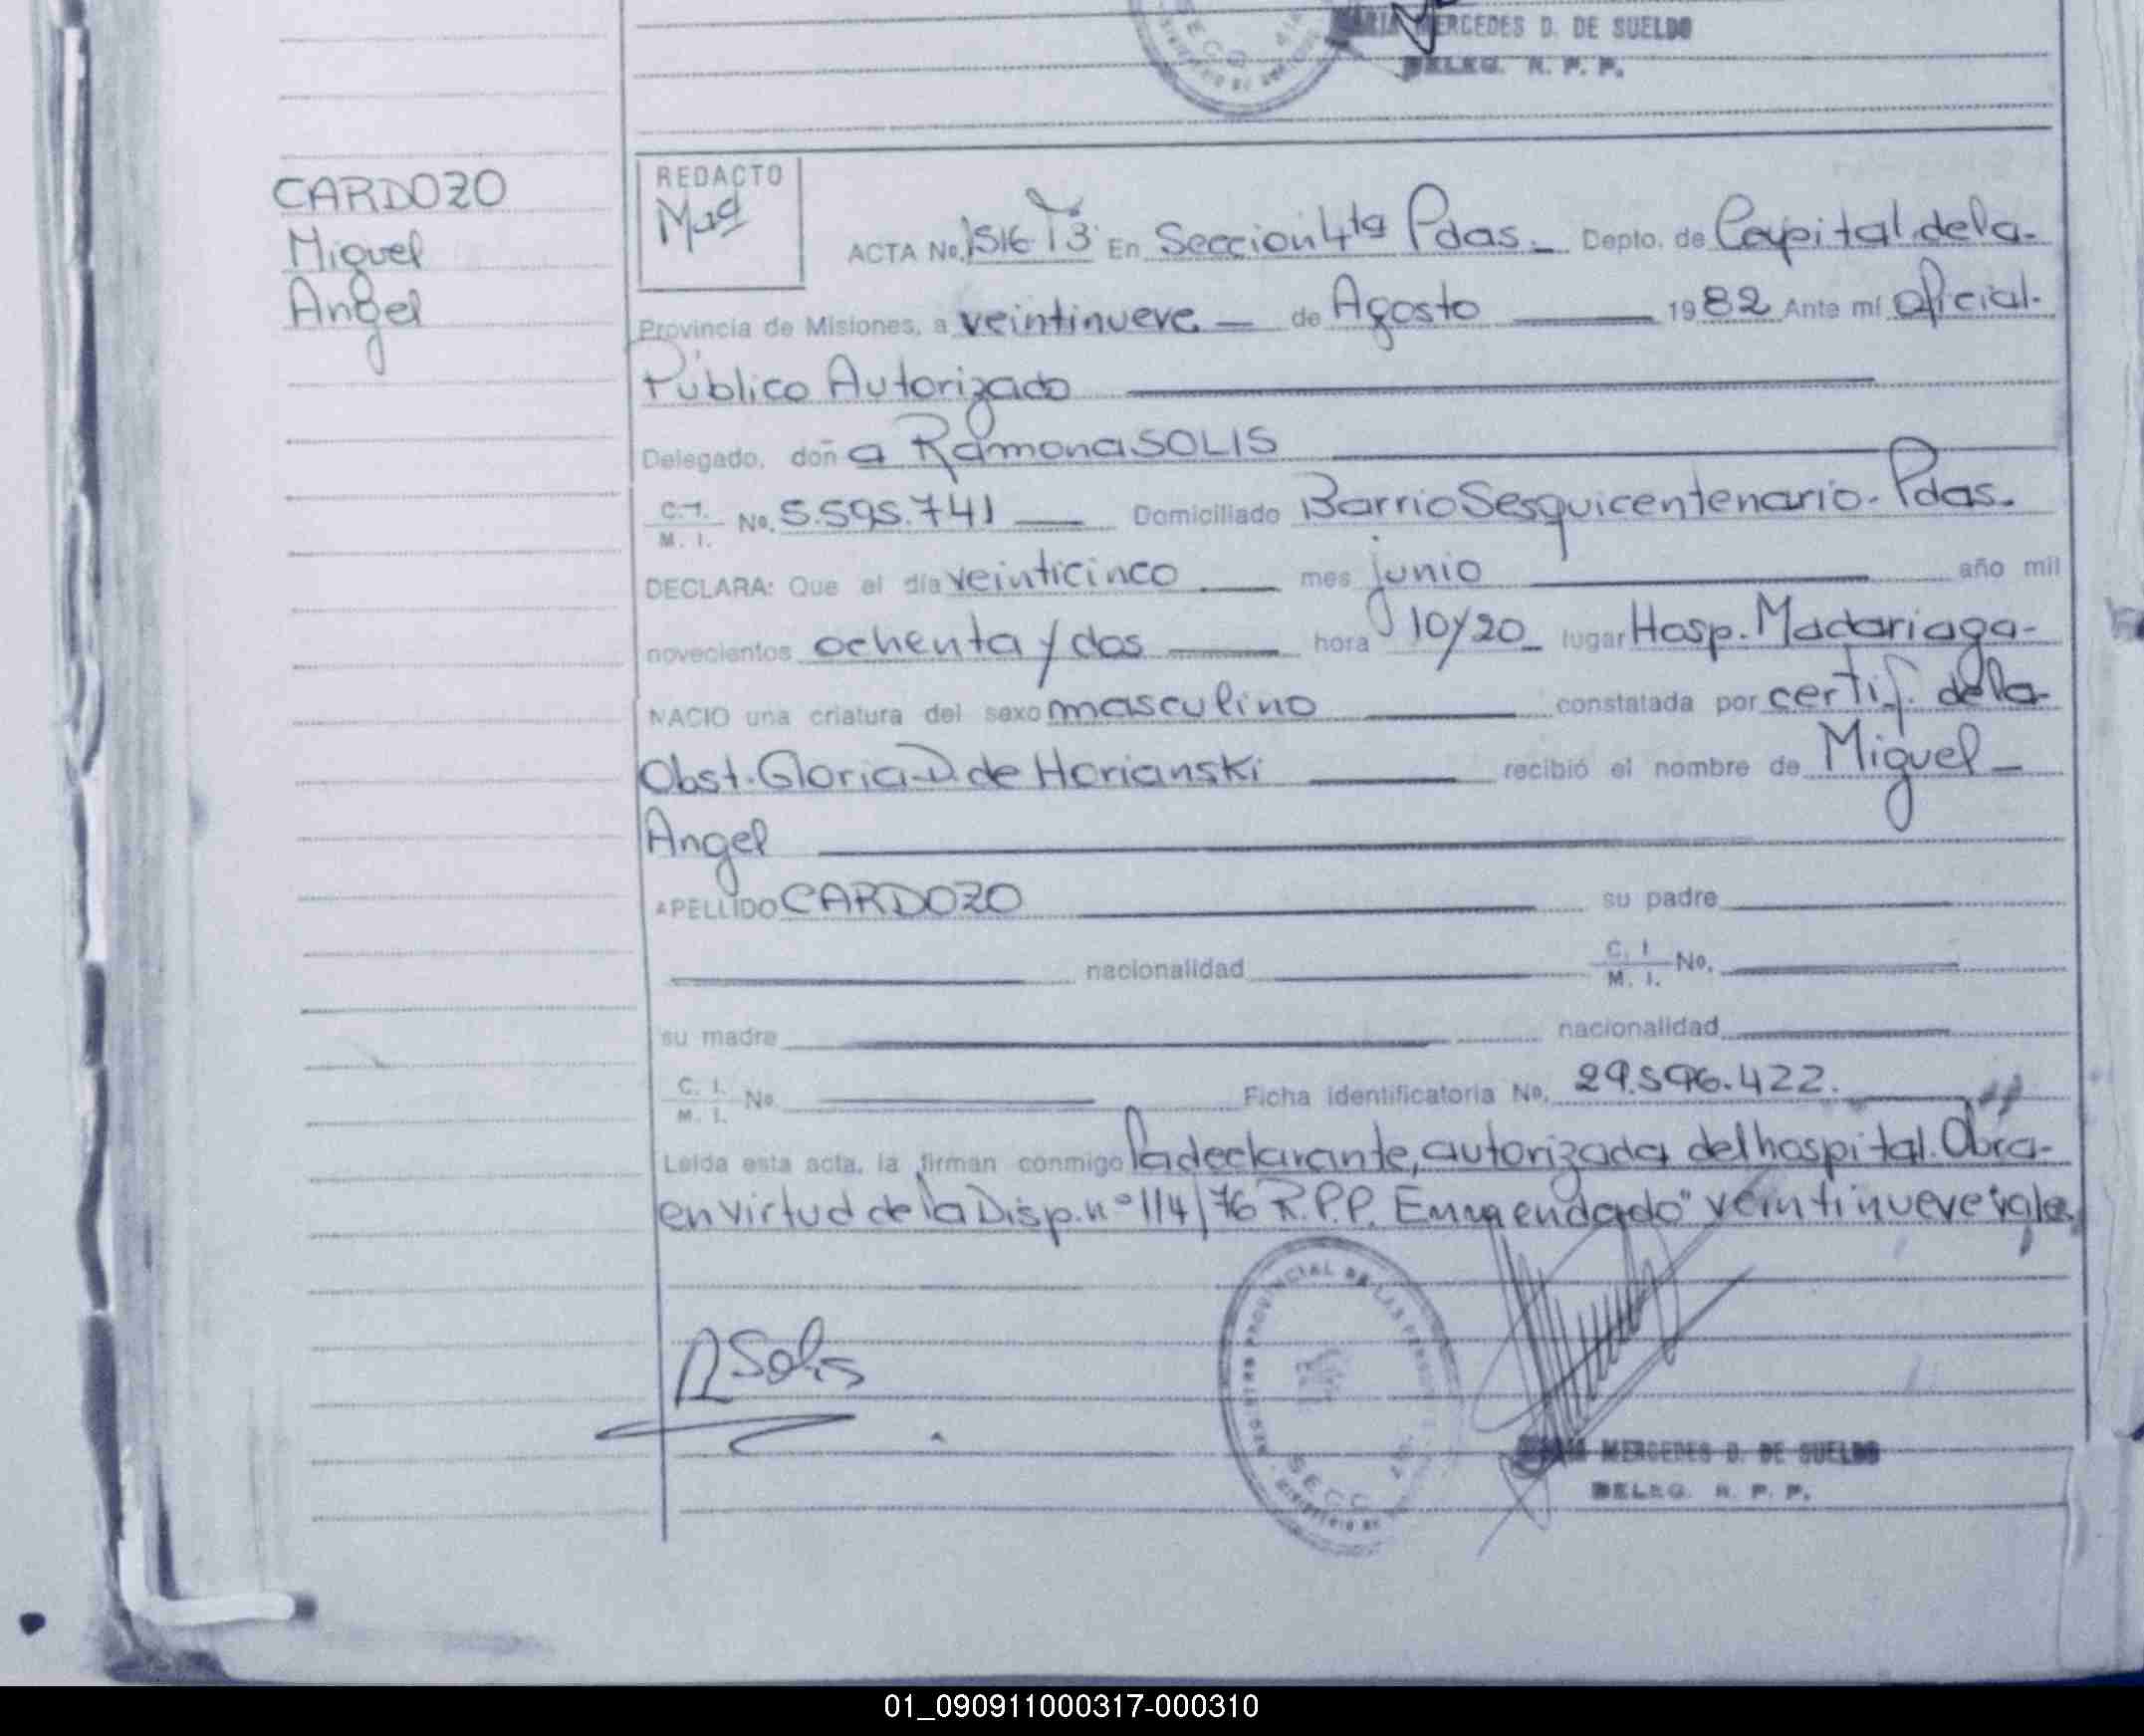 MERCEDES D. DE SUELDO
DELEG. R. P. P.
CARDOZO
Miguel
Angel
REDACTO
Mad
ACTA No. 1516 T3 En Seccion 4ta Pdas. Depto. de Capital de la
Provincia de Misiones, a veintinueve de Agosto 1982 Ante mí oficial
Público Autorizado
Delegado, doña Ramona SOLIS
C.I. M. I. No. 5.595.741 Domiciliado Barrio Sesquicentenario - Pdas.
DECLARA: Que el día veinticinco mes junio año mil
novecientos ochenta y dos hora 10/20 lugar Hosp. Madariaga
NACIO una criatura del sexo masculino constatada por certif. de la
Obst. Gloria D. de Horianski recibió el nombre de Miguel
Angel
APELLIDO CARDOZO su padre
nacionalidad C. I. M. I. No.
su madre nacionalidad
C. I. M. I. No. Ficha identificatoria No. 29.596.422.
Leída esta acta, la firman conmigo la declarante, autorizada del hospital. Obra
en virtud de la Disp. n° 114/76 R.P.P. Enmendado "veintinueve" vale.
R Solis
PROVINCIAL DE LAS
SECC
MERCEDES D. DE SUELDO
DELEG. R. P. P.
01_090911000317-000310